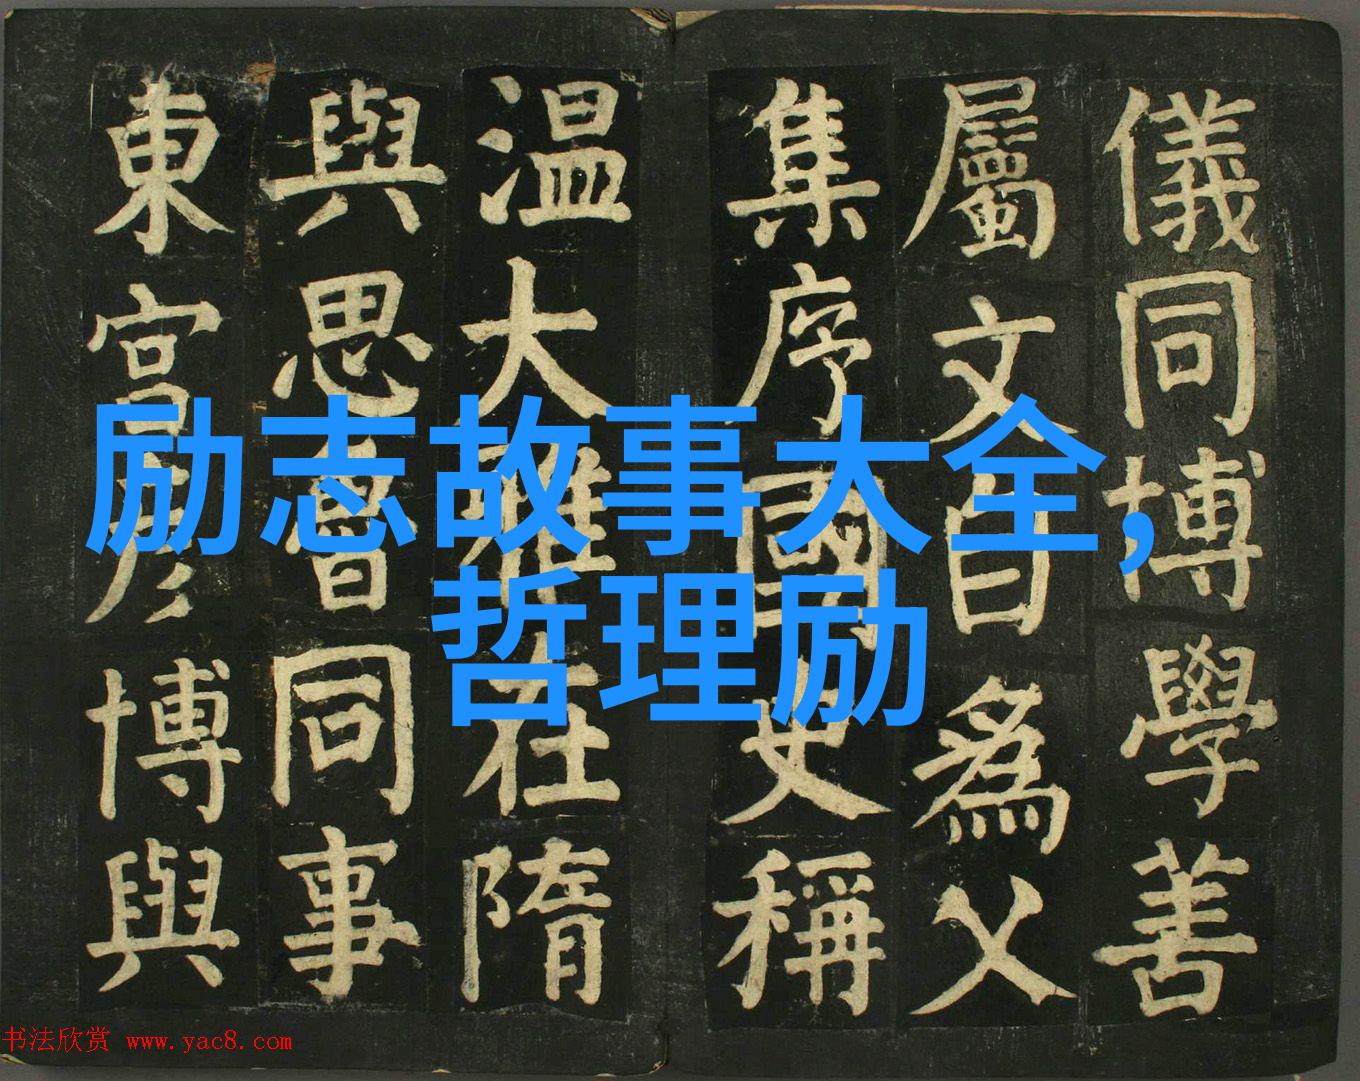 励志故事大全，
哲理励
儀同博學善
屬文自為父
集序國史稱
温大雅在隋
與思魯同事
東宮彦博與
书法欣赏 www.yac8.com